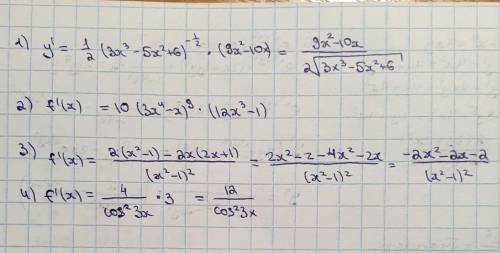 1) y' = 1/2 (3x³ - 5x² + 6)^(-1/2) · (9x² - 10x) = (9x² - 10x)/(2√(3x³ - 5x² + 6))
2) f'(x) = 10 (3x⁴ - x)⁹ · (12x³ - 1)
3) f'(x) = (2(x² - 1) - 2x(2x + 1))/(x² - 1)² = (2x² - 2 - 4x² - 2x)/(x² - 1)² = (-2x² - 2x - 2)/(x² - 1)²
4) f'(x) = 4/cos²3x · 3 = 12/cos²3x